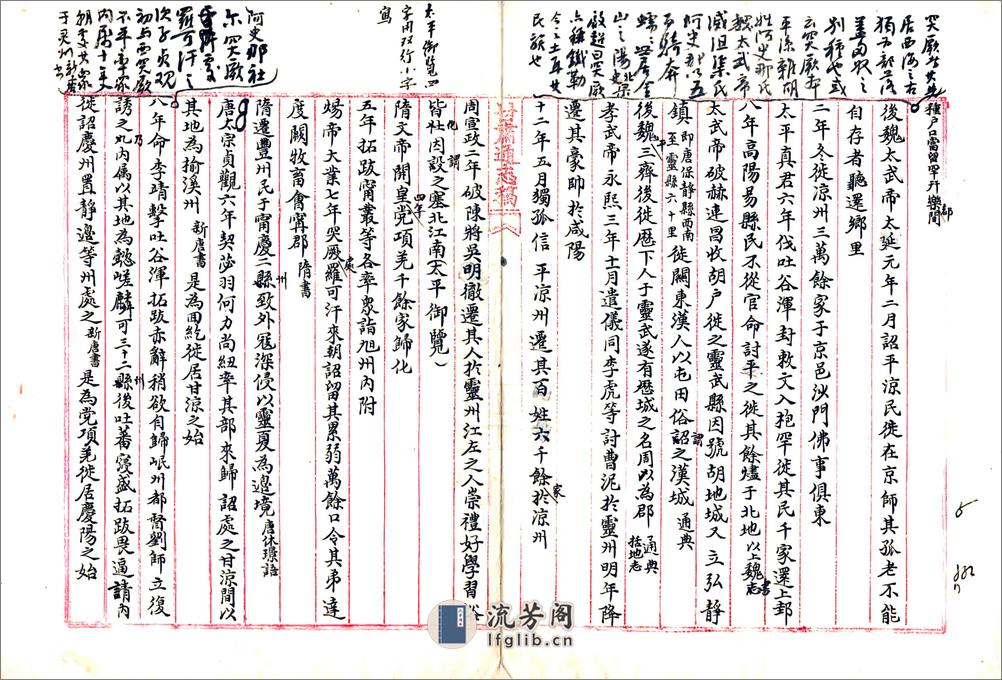 種戶口當留羿升樂間
後魏太武帝太延元年二月詔平涼民徙在京師其孤老不能
自存者聽還鄉里
二年冬徙涼州三萬餘家于京邑沙門佛事俱東
太平真君六年伐吐谷渾封敕文入抱罕徙其民千家還上邽
八年高陽易縣民不從官命討平之徙其餘燼于北地以上魏書志
太武帝破赫連昌收胡戶徙之靈武縣因號胡地城又立弘靜
鎮即唐保靜縣西南至靈縣六十里徙關東漢人以屯田俗謂之漢城通典
後魏平三齊後徙歷下人于靈武遂有歷城之名周以為郡通典括地志
孝武帝永熙三年十一月遣儀同李虎等討曹泥於靈州明年降
遷其豪帥於咸陽
十二年五月獨孤信平涼州遷其百姓六千餘家於涼州
周宣政二年破陳將吳明徹遷其人於靈州江左之人崇禮好學習俗
皆化因謂之塞北江南（太平御覽）
隋文帝開皇四年党項羌千餘家歸化
五年拓跋甯叢等各率眾詣旭州內附
煬帝大業七年突厥處羅可汗來朝詔留其累弱萬餘口令其弟達
度闕牧畜會甯郡隋書
隋遷豐州民于甯慶二州致外寇深侵以靈夏為邊境唐休璟語
唐太宗貞觀六年契苾羽何力尚紐率其部來歸詔處之甘涼間以
其地為揄溪州新唐書是為回紇徙居甘涼之始
八年命李靖擊吐谷渾拓跋赤辭稍欲自歸岷州都督劉師立復
誘之乃內屬以其地為懿嵯麟可三十二州縣後吐蕃寖盛拓跋畏逼請內
徙詔慶州置靜邊等州處之新唐書是為党項羌徙居慶陽之始
甘肅通志稿
突厥者其先
居西海之右
獨為部落
蓋匈奴之
別種也或
云突厥本
平涼雜胡
姓阿史那氏
魏太武帝
滅沮渠氏
阿史那以五
百騎奔
蠕蠕世居金
山之陽
六種鐵勒
民族也
太平御覽四
字用双行小字
寫
阿史那社
尔突厥
處
羅可汗之
次子貞觀
初与西突厥
不平
內屬十年
入朝
于靈州
流芳阁
lfglib.cn